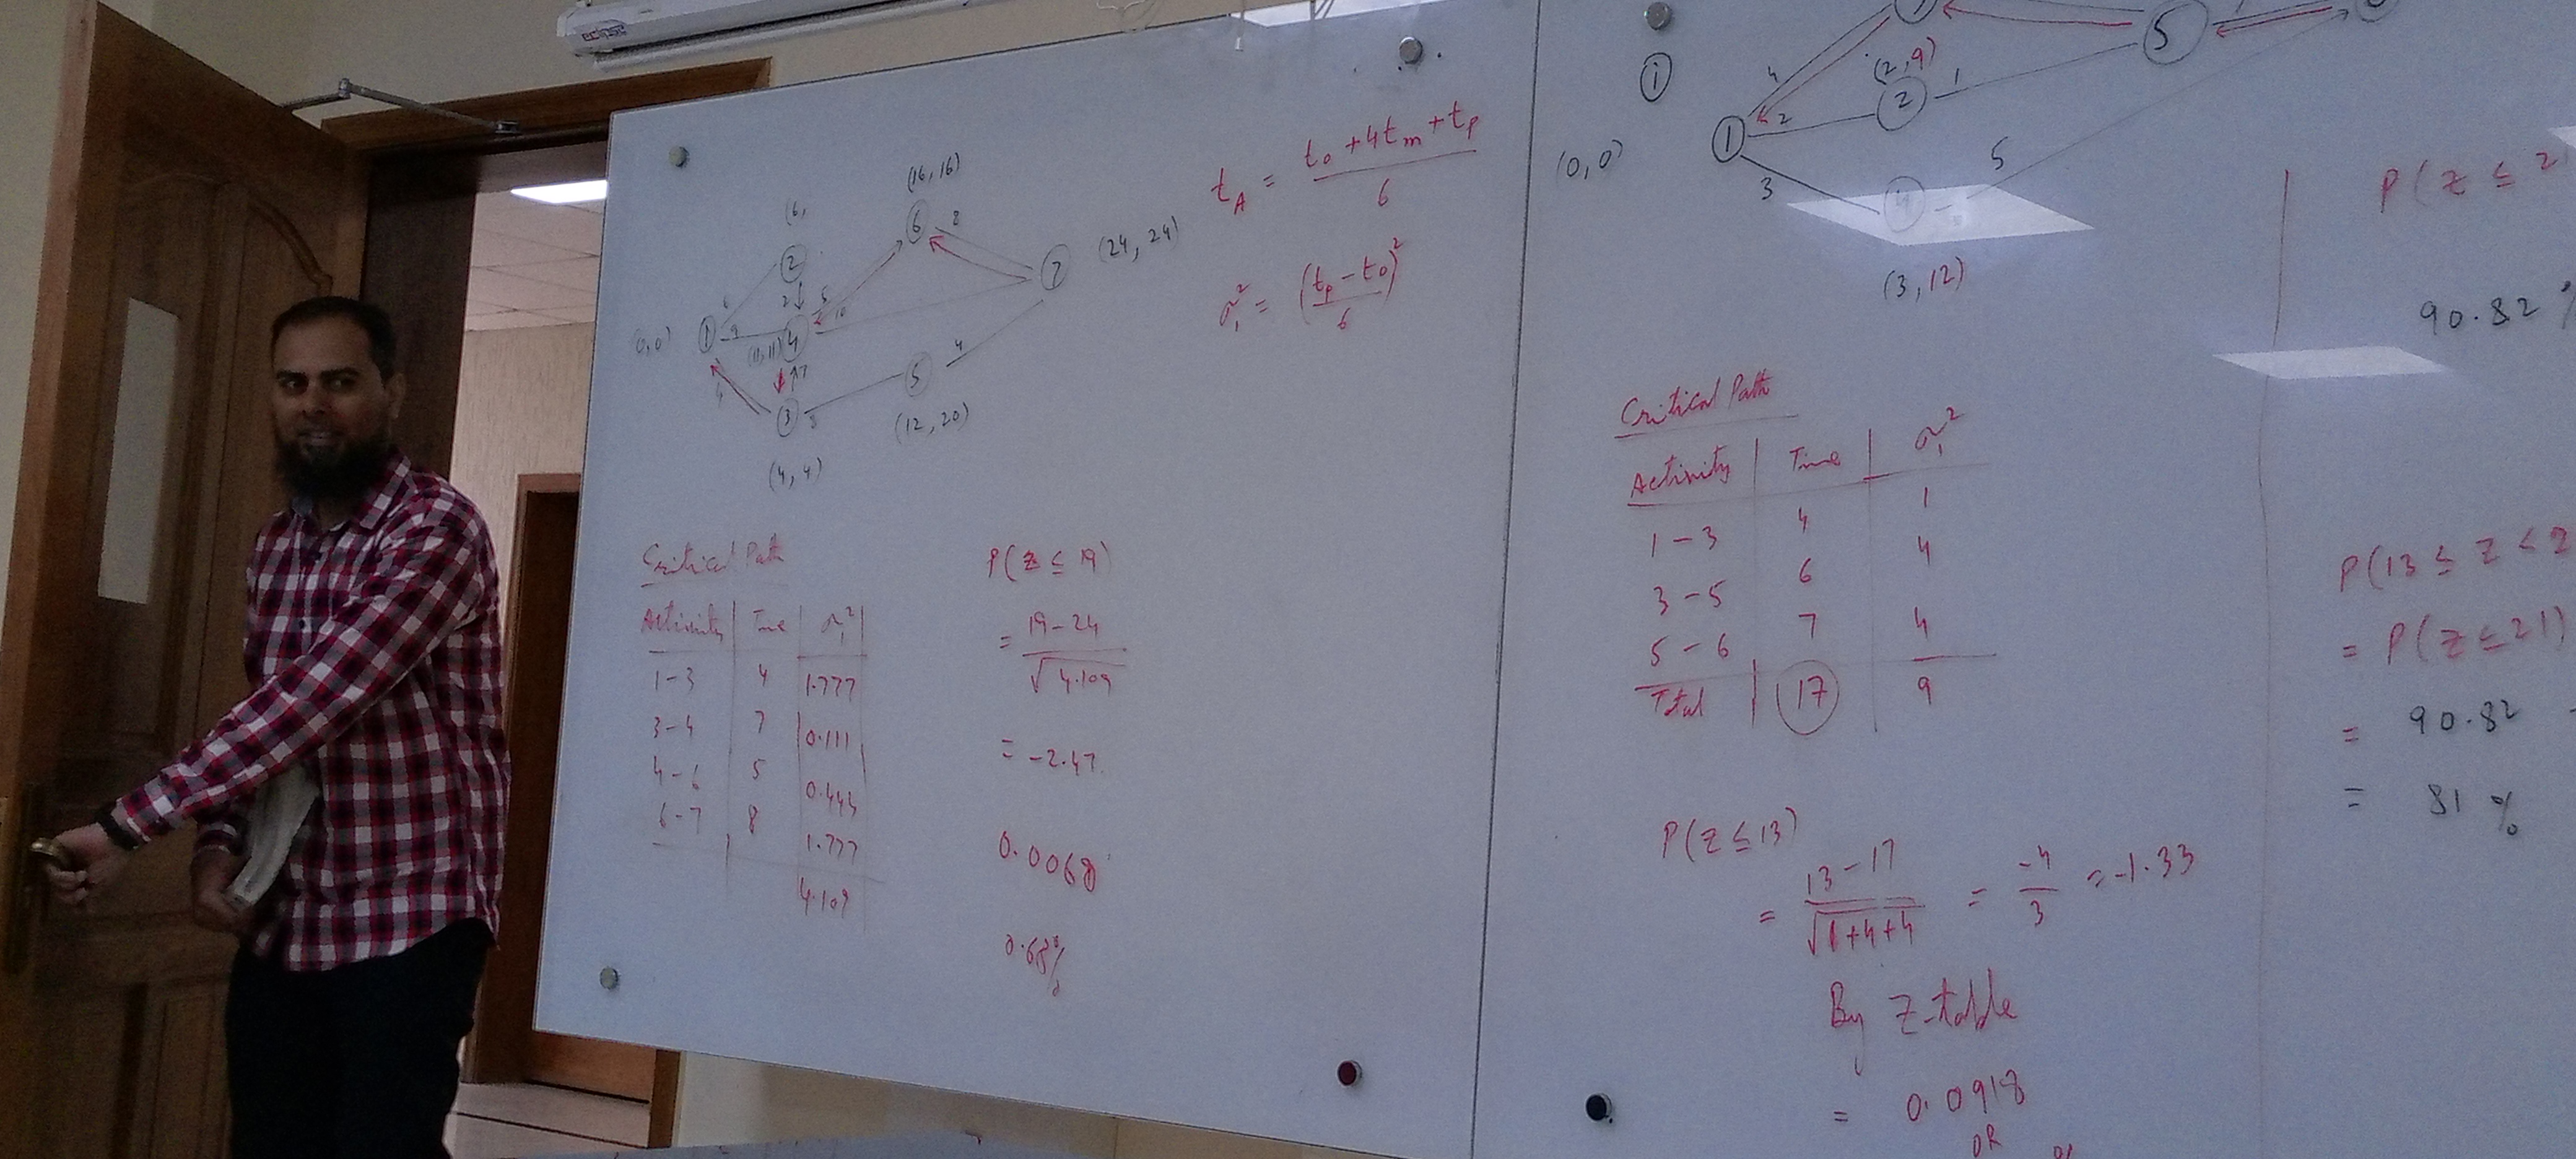 (16, 16)
(6,
6
8
2
7
(24, 24)
6
2
5
(0,0)
1
9
(11,11)
4
10
7
4
5
4
3
8
(12, 20)
(4, 4)
t_A = (t_o + 4t_m + t_p) / 6
σ_i² = ((t_p - t_o) / 6)²
Critical Path
Activity | Time | σ_i²
1-3 4 1.777
3-4 7 0.111
4-6 5 0.444
6-7 8 1.777
4.109
P(z ≤ 19)
= (19-24) / √4.109
= -2.47
0.0068
0.68%
i
4
(2,9)
5
1
2
2
1
(0,0)
3
5
4
(3,12)
Critical Path
Activity | Time | σ_i²
1-3 4 1
3-5 6 4
5-6 7 4
Total 17 9
P(z ≤ 13)
= (13-17) / √(1+4+4) = -4/3 = -1.33
By z-table
= 0.0918
OR
P(z ≤ 2
90.82 %
P(13 ≤ z ≤ 2
= P(z ≤ 21)
= 90.82
= 81 %